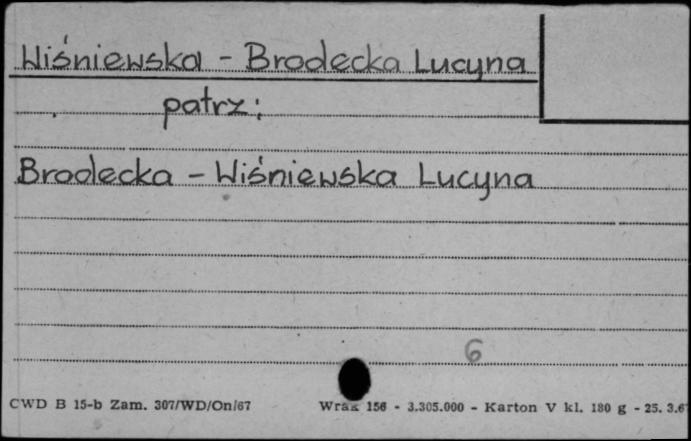 Wiśniewska - Brodecka Lucyna
patrz:
Brodecka - Wiśniewska Lucyna
6
CWD B 15-b Zam. 307/WD/On/67 156 - 3.305.000 - Karton V kl. 180 g - 25. 3.6